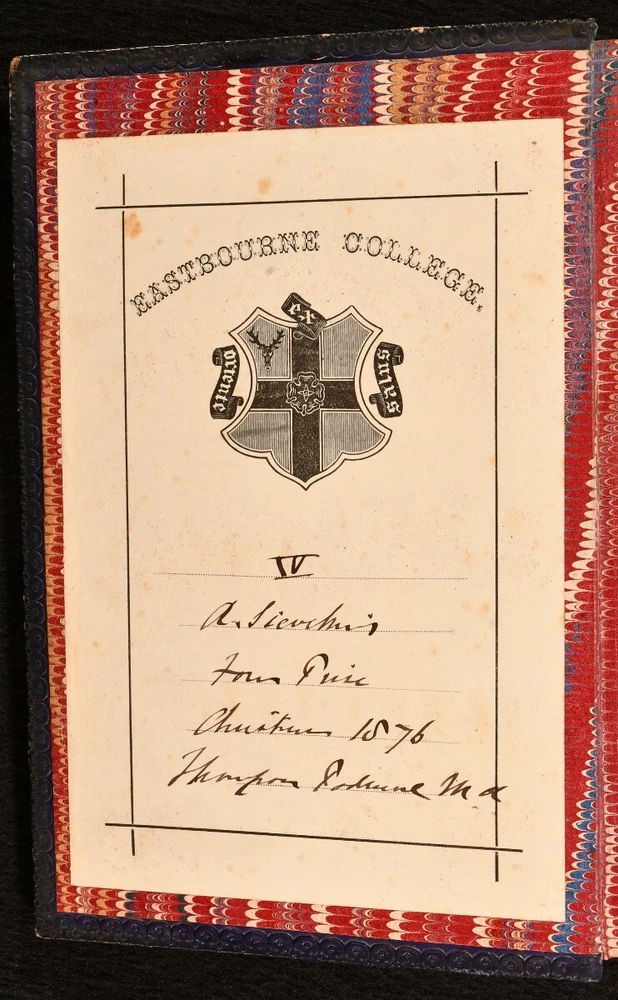 EASTBOURNE COLLEGE.
ex
oriente
salus
IV
A. Sieveking
Form Prize
Christmas 1876
Thompson Podmore M a